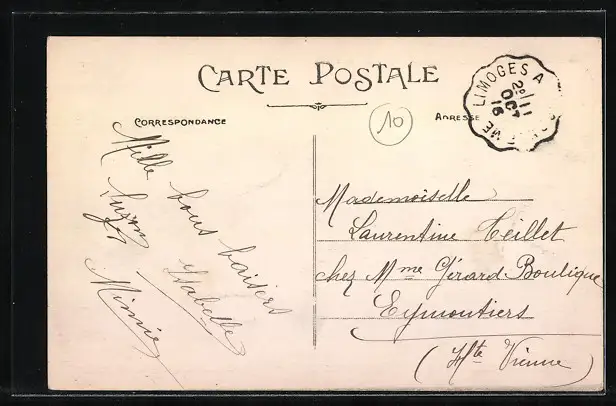 CARTE POSTALE
CORRESPONDANCE
ADRESSE
10
LIMOGES A
2º/11
OCT
16
ME
Mille bons baisers
Isabelle
Suzon
Mimie
Mademoiselle
Laurentine Teillet
chez Mme Gérard Boutique
Eymoutiers
(Hte Vienne)